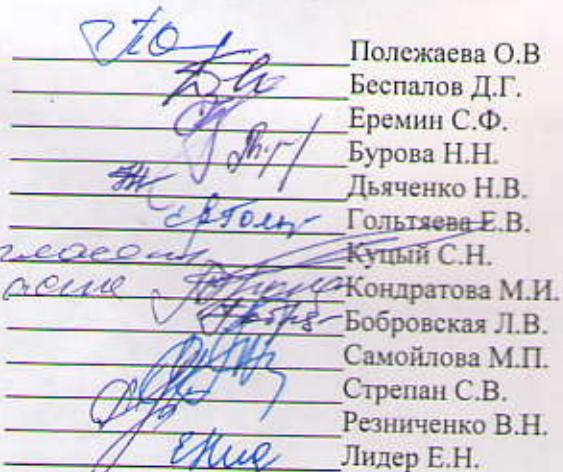 Полежаева О.В
Беспалов Д.Г.
Еремин С.Ф.
Бурова Н.Н.
Дьяченко Н.В.
Гольтяева Е.В.
Куцый С.Н.
Кондратова М.И.
Бобровская Л.В.
Самойлова М.П.
Стрепан С.В.
Резниченко В.Н.
Лидер Е.Н.